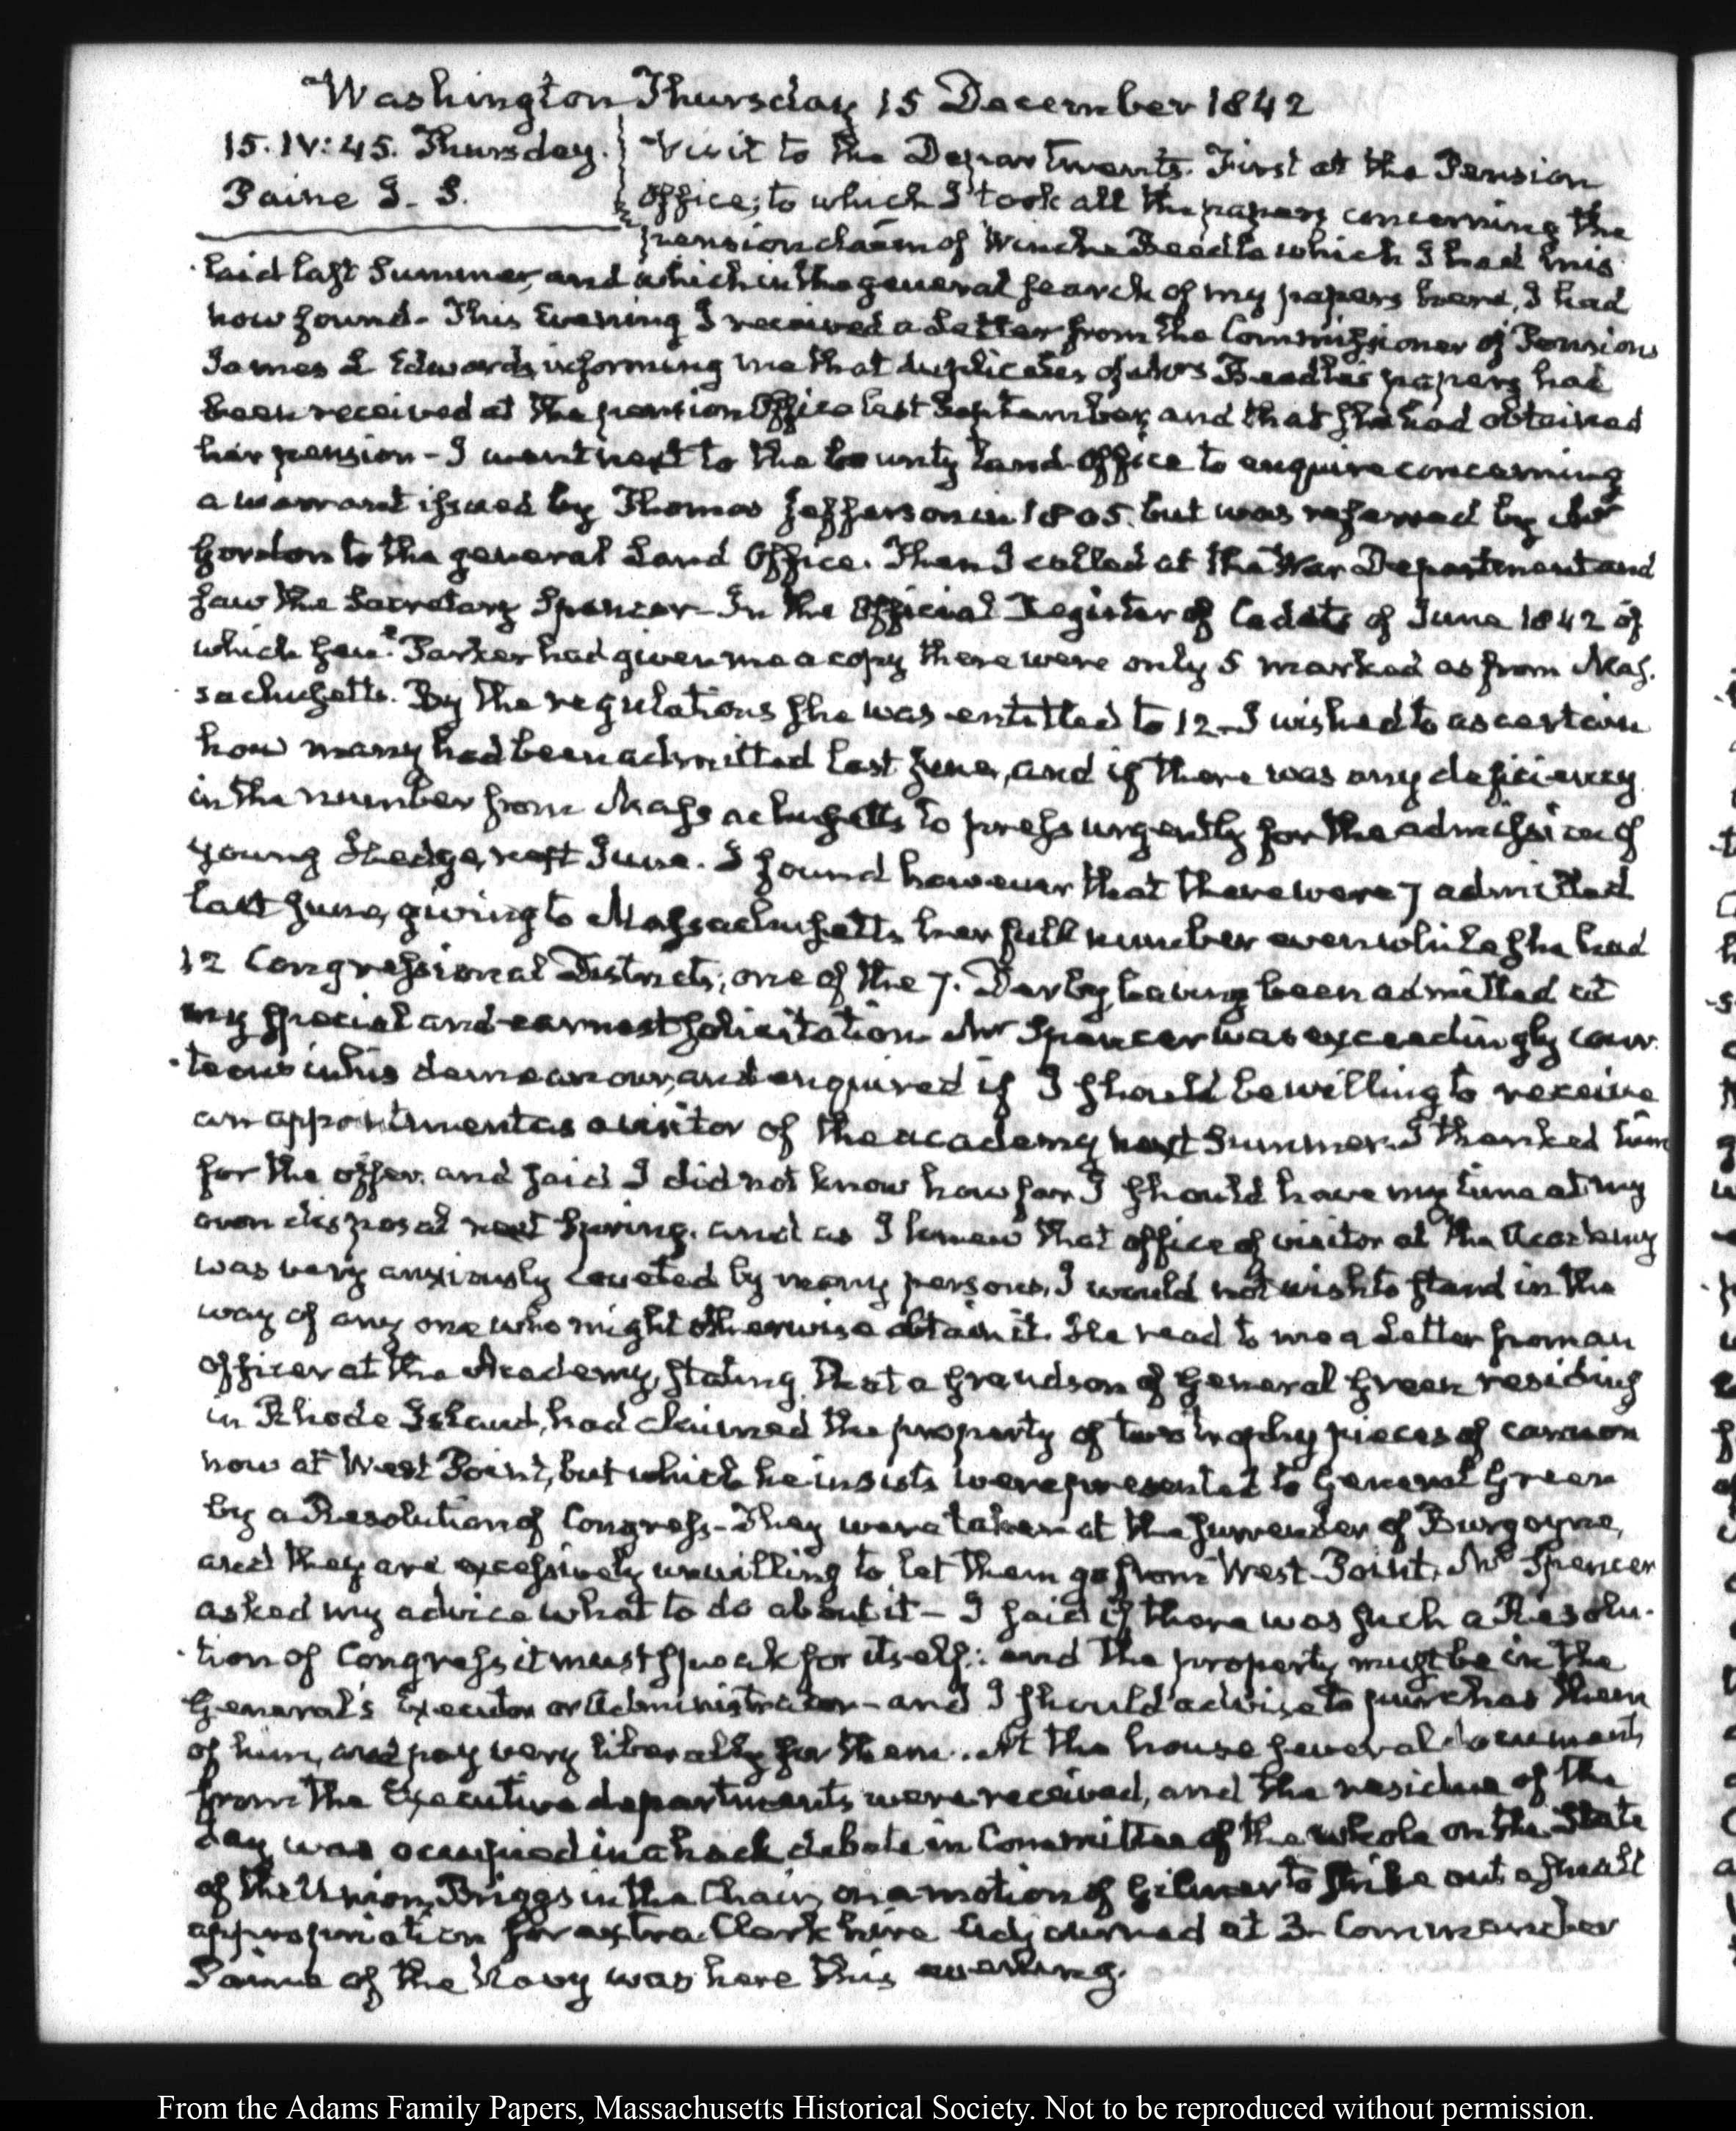 Washington Thursday 15 December 1842
15. IV: 45. Thursday.
Paine J. S.
Visit to the Departments. First at the Pension
Office; to which I took all the papers concerning the
pension claim of Beedle which I had mis
laid last Summer, and which in the general search of my papers here, I had
now found. This Evening I received a Letter from the Commissioner of Pensions
James L Edwards, informing me that duplicates of Mrs Beedles papers had
been received at the pension Office last September, and that she had obtained
her pension - I went next to the bounty land Office to enquire concerning
a warrant issued by Thomas Jefferson in 1805. but was referred by Mr
Gordon to the general Land Office. Then I called at the War Department and
saw the Secretary Spencer - In the Official Register of Cadets of June 1842 of
which Genl. Parker had given me a copy there were only 5 marked as from Mas-
sachusetts. By the regulations she was entitled to 12 - I wished to ascertain
how many had been admitted last June, and if there was any deficiency
in the number from Massachusetts to press urgently for the admission of
young Sledge, next June. I found however that there were 7 admitted
last June, giving to Massachusetts her full number even while she had
12 Congressional Districts; one of the 7. Darby, having been admitted at
my special and earnest solicitation. Mr Spencer was exceedingly cour-
teous in his demeanour, and enquired if I should be willing to receive
an appointment as a visitor of the academy next Summer. I thanked him
for the offer, and said I did not know how far I should have my time at my
own disposal next Spring, and as I knew that office of visitor at the Academy
was very anxiously coveted by many persons, I would not wish to stand in the
way of any one who might otherwise obtain it. He read to me a Letter from an
officer at the Academy, stating that a grandson of General Green residing
in Rhode Island, had claimed the property of two trophy pieces of cannon
now at West Point, but which he insists were presented to General Green
by a Resolution of Congress - They were taken at the surrender of Burgoyne,
and they are excessively unwilling to let them go from West-Point. Mr Spencer
asked my advice what to do about it - I said if there was such a Resolu-
tion of Congress it must speak for itself: and the property must be in the
General's Executor or Administrator - and I should advise to purchas them
of him, and pay very liberally for them. At the house several documents
from the Executive departments were received, and the residue of the
day was occupied in a hack debate in Committee of the whole on the State
of the Union, Briggs in the Chair, on a motion of Gilmer to strike out a small
appropriation for extra Clerk hire Adjourned at 3 - Commander
Paine of the Navy was here this evening.
From the Adams Family Papers, Massachusetts Historical Society. Not to be reproduced without permission.